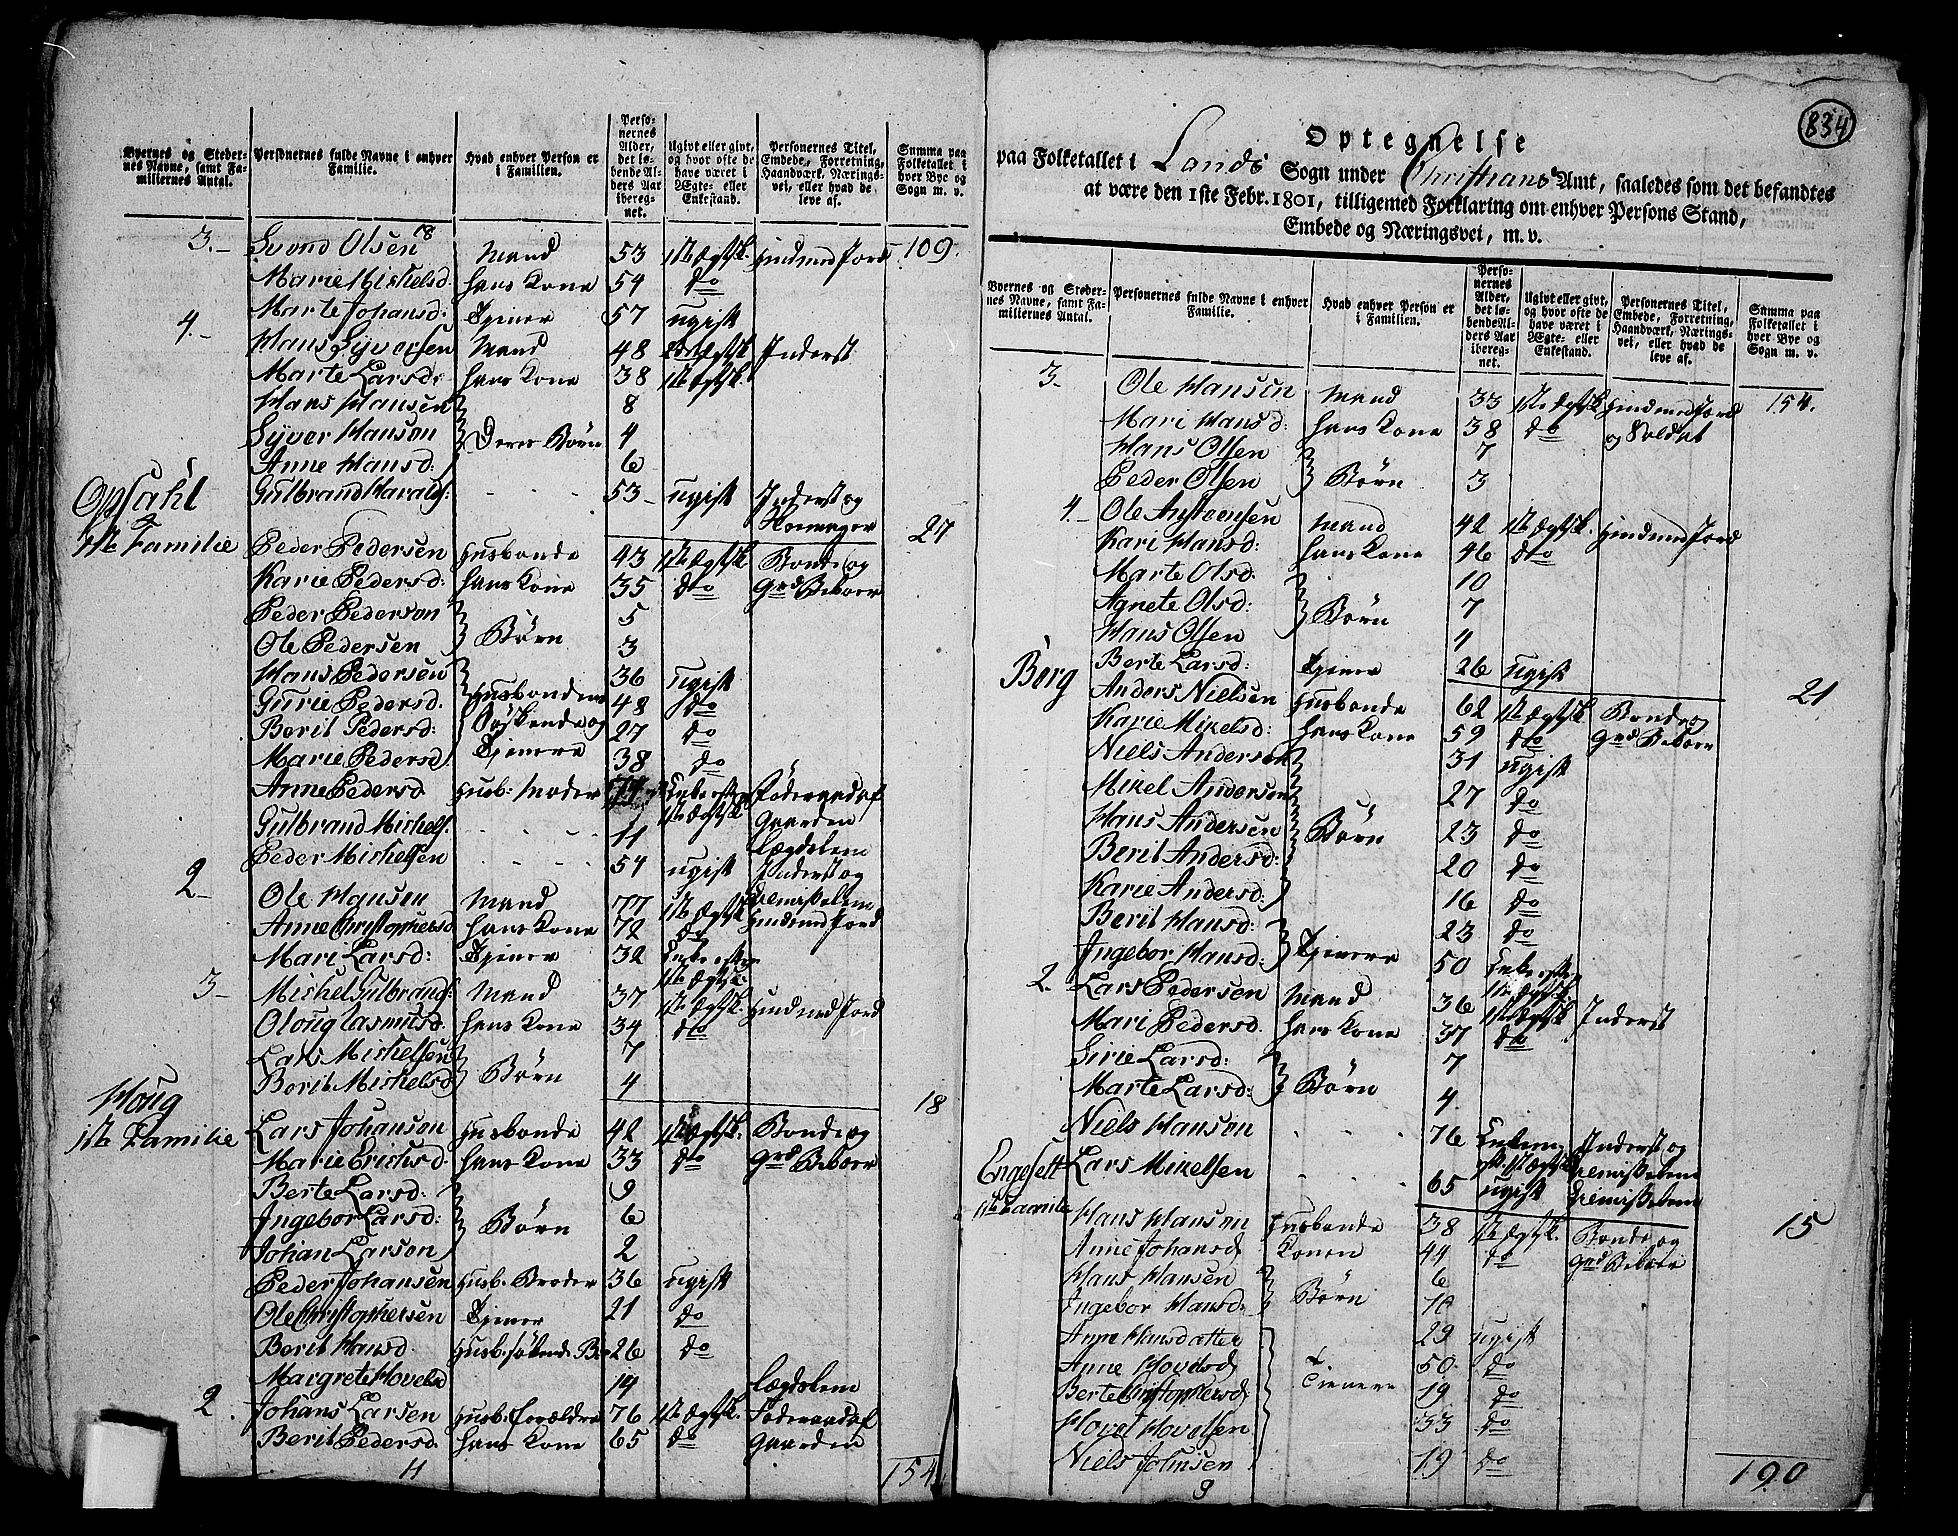 Byernes og Stedernes Navne, samt Familiernes Antal. | Personernes fulde Navne i enhver Familie. | Hvad enhver Person er i Familien. | Personernes Alder, det løbende Alders Aar iberegnet. | Ugivt eller givt, og hvor ofte de have været i Ægte- eller Enkestand. | Personernes Titel, Embede, Forretning, Haandværk, Næringsvei, eller hvad de leve af. | Summa paa Folketallet i hver Bye og Sogn m. v.
3.- Svend Olsen Mand 53 1ste Ægtsk. Huusmed Jord 109.
Marie Mickelsd. hans Kone 54 do
Marte Johansd: Tjener 57 ugift
4.- Hans Syversen Mand 48 2det Ægtsk Inderst
Marte Larsd: hans Kone 38 1ste Ægtsk.
Hans Hansen 8
Syver Hansen Deres Børn 4
Anne Hansd. 6
Opsahl
Gulbrand Haralds: - - - 53 ugift Inderst og
27
1ste Familie Peder Pedersen Husbonde 43 1ste Ægtsk Bonde og
Karie Pedersd: hans Kone 35 do Grd Beboer
Peder Pedersen 5
Ole Pedersen Børn 3
Hans Pedersen 36 ugift
Gurie Pedersd. Husbondens 48 do
Berit Pedersd: Søskende og 27 do
Marie Pedersd Tjenere 38 do
Anne Pedersd Husb: Moder Enke efter 1ste Ægtsk Føderaad af Gaarden
Gulbrand Mickels. - - - 11 Lægdslem
Peder Mickelsen - - - 54 ugift Inderst og
2- Ole Hansen Mand 77 1ste Ægtsk. Huusmed Jord
Anne Christophersd hans Kone 72 do
Mari Larsd: Tjener 32 Enke efter 1ste Ægtsk:
3- Mickel Gulbrands: Mand 37 1ste Ægtsk. Huusmed Jord
Oloug Rasmusd. hans Kone 34 do
Lars Mickelsen 7
Berit Mickelsd Børn 4
Houg 18
1ste Familie Lars Johansen Husbonde 42 1ste Ægtsk. Bonde og
Marie Erichsd. hans Kone 33 do Grd Beboer
Berte Larsd: 9
Ingebor Larsd: Børn 6
Johan Larsen 2
Peder Johansen Husb: Broder 36 ugift
Ole Christophersen Tjener 21 do
Berit Hansd. 26 do
Margrete Hovelsd 14 Lægdslem
2. Johans Larsen Husb: Forældre 76 1ste Ægtsk. Føderaad af
Berit Pedersd. hans Kone 65 do Gaarden
11 154
834
Optegnelse
paa Folketallet i Lands Sogn under Christians Amt, saaledes som det befandtes
at være den 1ste Febr. 1801, tilligemed Forklaring om enhver Persons Stand,
Embede og Næringsvei, m. v.
Byernes og Stedernes Navne, samt Familiernes Antal. | Personernes fulde Navne i enhver Familie. | Hvad enhver Person er i Familien. | Personernes Alder, det løbende Alders Aar iberegnet. | Ugivt eller givt, og hvor ofte de have været i Ægte- eller Enkestand. | Personernes Titel, Embede, Forretning, Haandværk, Næringsvei, eller hvad de leve af. | Summa paa Folketallet i hver Bye og Sogn m. v.
3.- Ole Hansen Mand 33 1ste Ægtsk. Huusmed Jord 154.
Mari Hansd: hans Kone 38 do og Soldat
Hans Olsen 7
Peder Olsen Børn 3
4.- Ole Austensen Mand 42 1ste Ægtsk. Huusmed Jord
Kari Hansd: hans Kone 46 do
Marte Olsd. 10
Agnete Olsd: Børn 7
Hans Olsen 4
Berte Larsd: Tjener 26 ugift
Berg
Anders Nielsen Husbonde 62 1ste Ægtsk Bonde og 21
Karie Mikelsd: hans Kone 59 do Grd Beboer
Niels Andersen 31 ugift
Mikel Andersen 27 do
Hans Andersen Børn 23 do
Berit Andersd: 20 do
Karie Andersd: 16 do
Berit Hansd: 23 do
Ingebor Hansd: Tjenere 50 Enke efter 1ste Ægtsk
2.- Lars Pedersen Mand 36 1ste Ægtsk Inderst
Mari Pedersd. hans Kone 37 do
Sirie Larsd: 7
Marte Larsd: Børn 4.
Niels Hansen - - - 76 Inderst og
Engesett Lars Mikelsen - - - 65 ugift
1ste Familie Hans Hansen Husbonde 38 1ste Ægtsk. Bonde og 15
Anne Johansd Konen 44 do Grd Beboer
Hans Hansen 6
Ingebor Hansd: Børn 10
Anne Hansdatter 29 ugift
Anne Hovelsd 50 do
Berte Christophersd Tienere 19 do
Hovel Hovelsen 33 do
Niels Johnsen 19 do
9 190